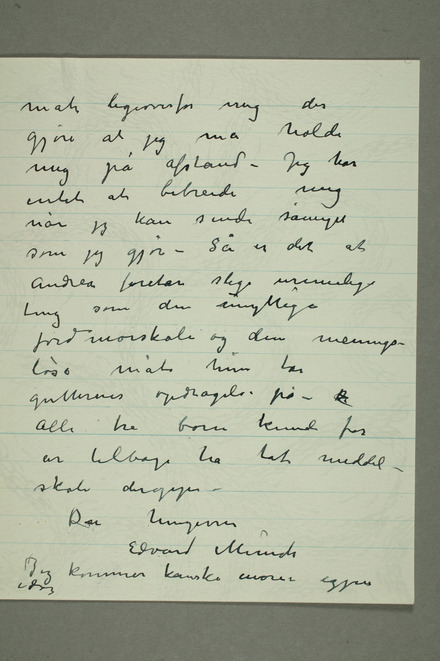 måte ligeoverfor mig der
gjøre at jeg må holde
mig på afstand – Jeg har
intet at bebreide mig
når jeg kan sende såmeget
som jeg gjør – Så er det at
Andrea foretar slige urimelige
ting som den unyttige
jordmorskole og den menings-
løse måte hun tar
gutternes opdragelse på –
Alle tre børn kunde for
år tilbage ha tat middel-
skole
Din hengivne
Edvard Munch
Jeg kommer kanske engang